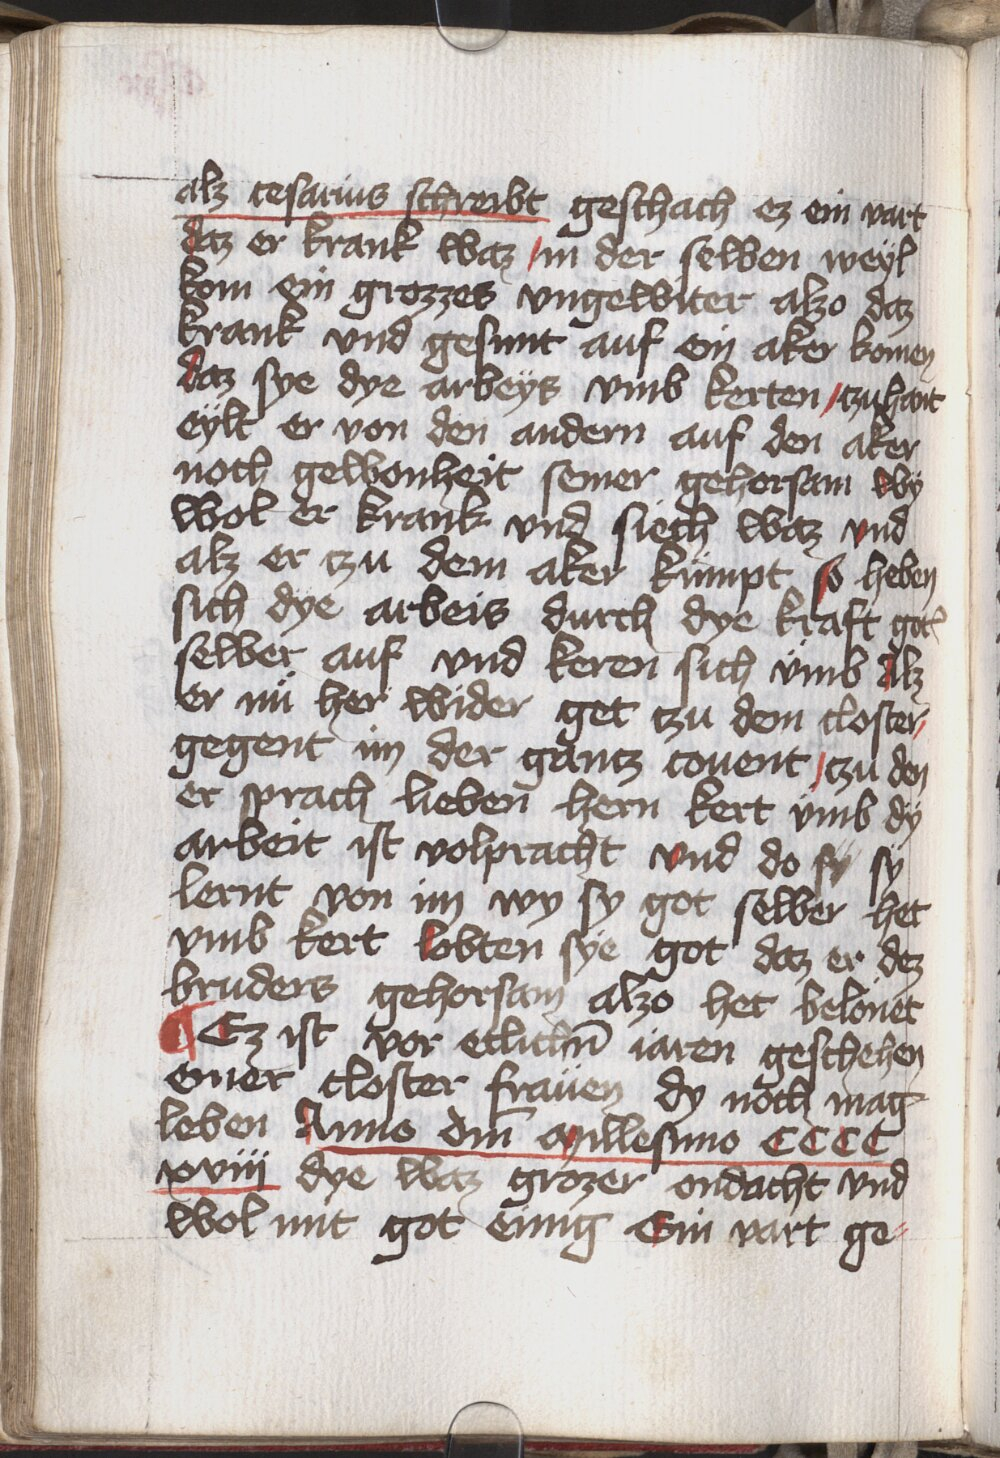 alz cesarius schreibt geschach ez ein vart
daz er krank waz / in der selben weyl
kom ein grozzes vngewiter alzo daz
krank vnd gesunt auf ein aker komen
daz sye dye arbeys vmb kerten / tzuhant
eylt er von den andern auf den aker
noch gewonheit seiner gehorsam wy
wol er krank vnd siech waz vnd
alz er tzu dem aker kumpt so heben
sich dye arbeis durch dye kraft got
selber auf vnd keren sich vmb alz
er nu her wider get tzu dem closter /
gegent im der gantz couent / tzu den
er sprach lieben hern kert vmb dy
arbeit ist volpracht vnd do sy
lernt von im wy sy got selber het
vmb kert lobten sye got daz er dez
bruders gehorsam alzo het belonet
¶ Ez ist vor etlichn̄ iaren geschehen
einer closter frauen dy noch mag
leben Anno dm̄ millesimo CCCC
xviii dye waz grozer ondacht vnd
wol mit got einig Ein vart ge-